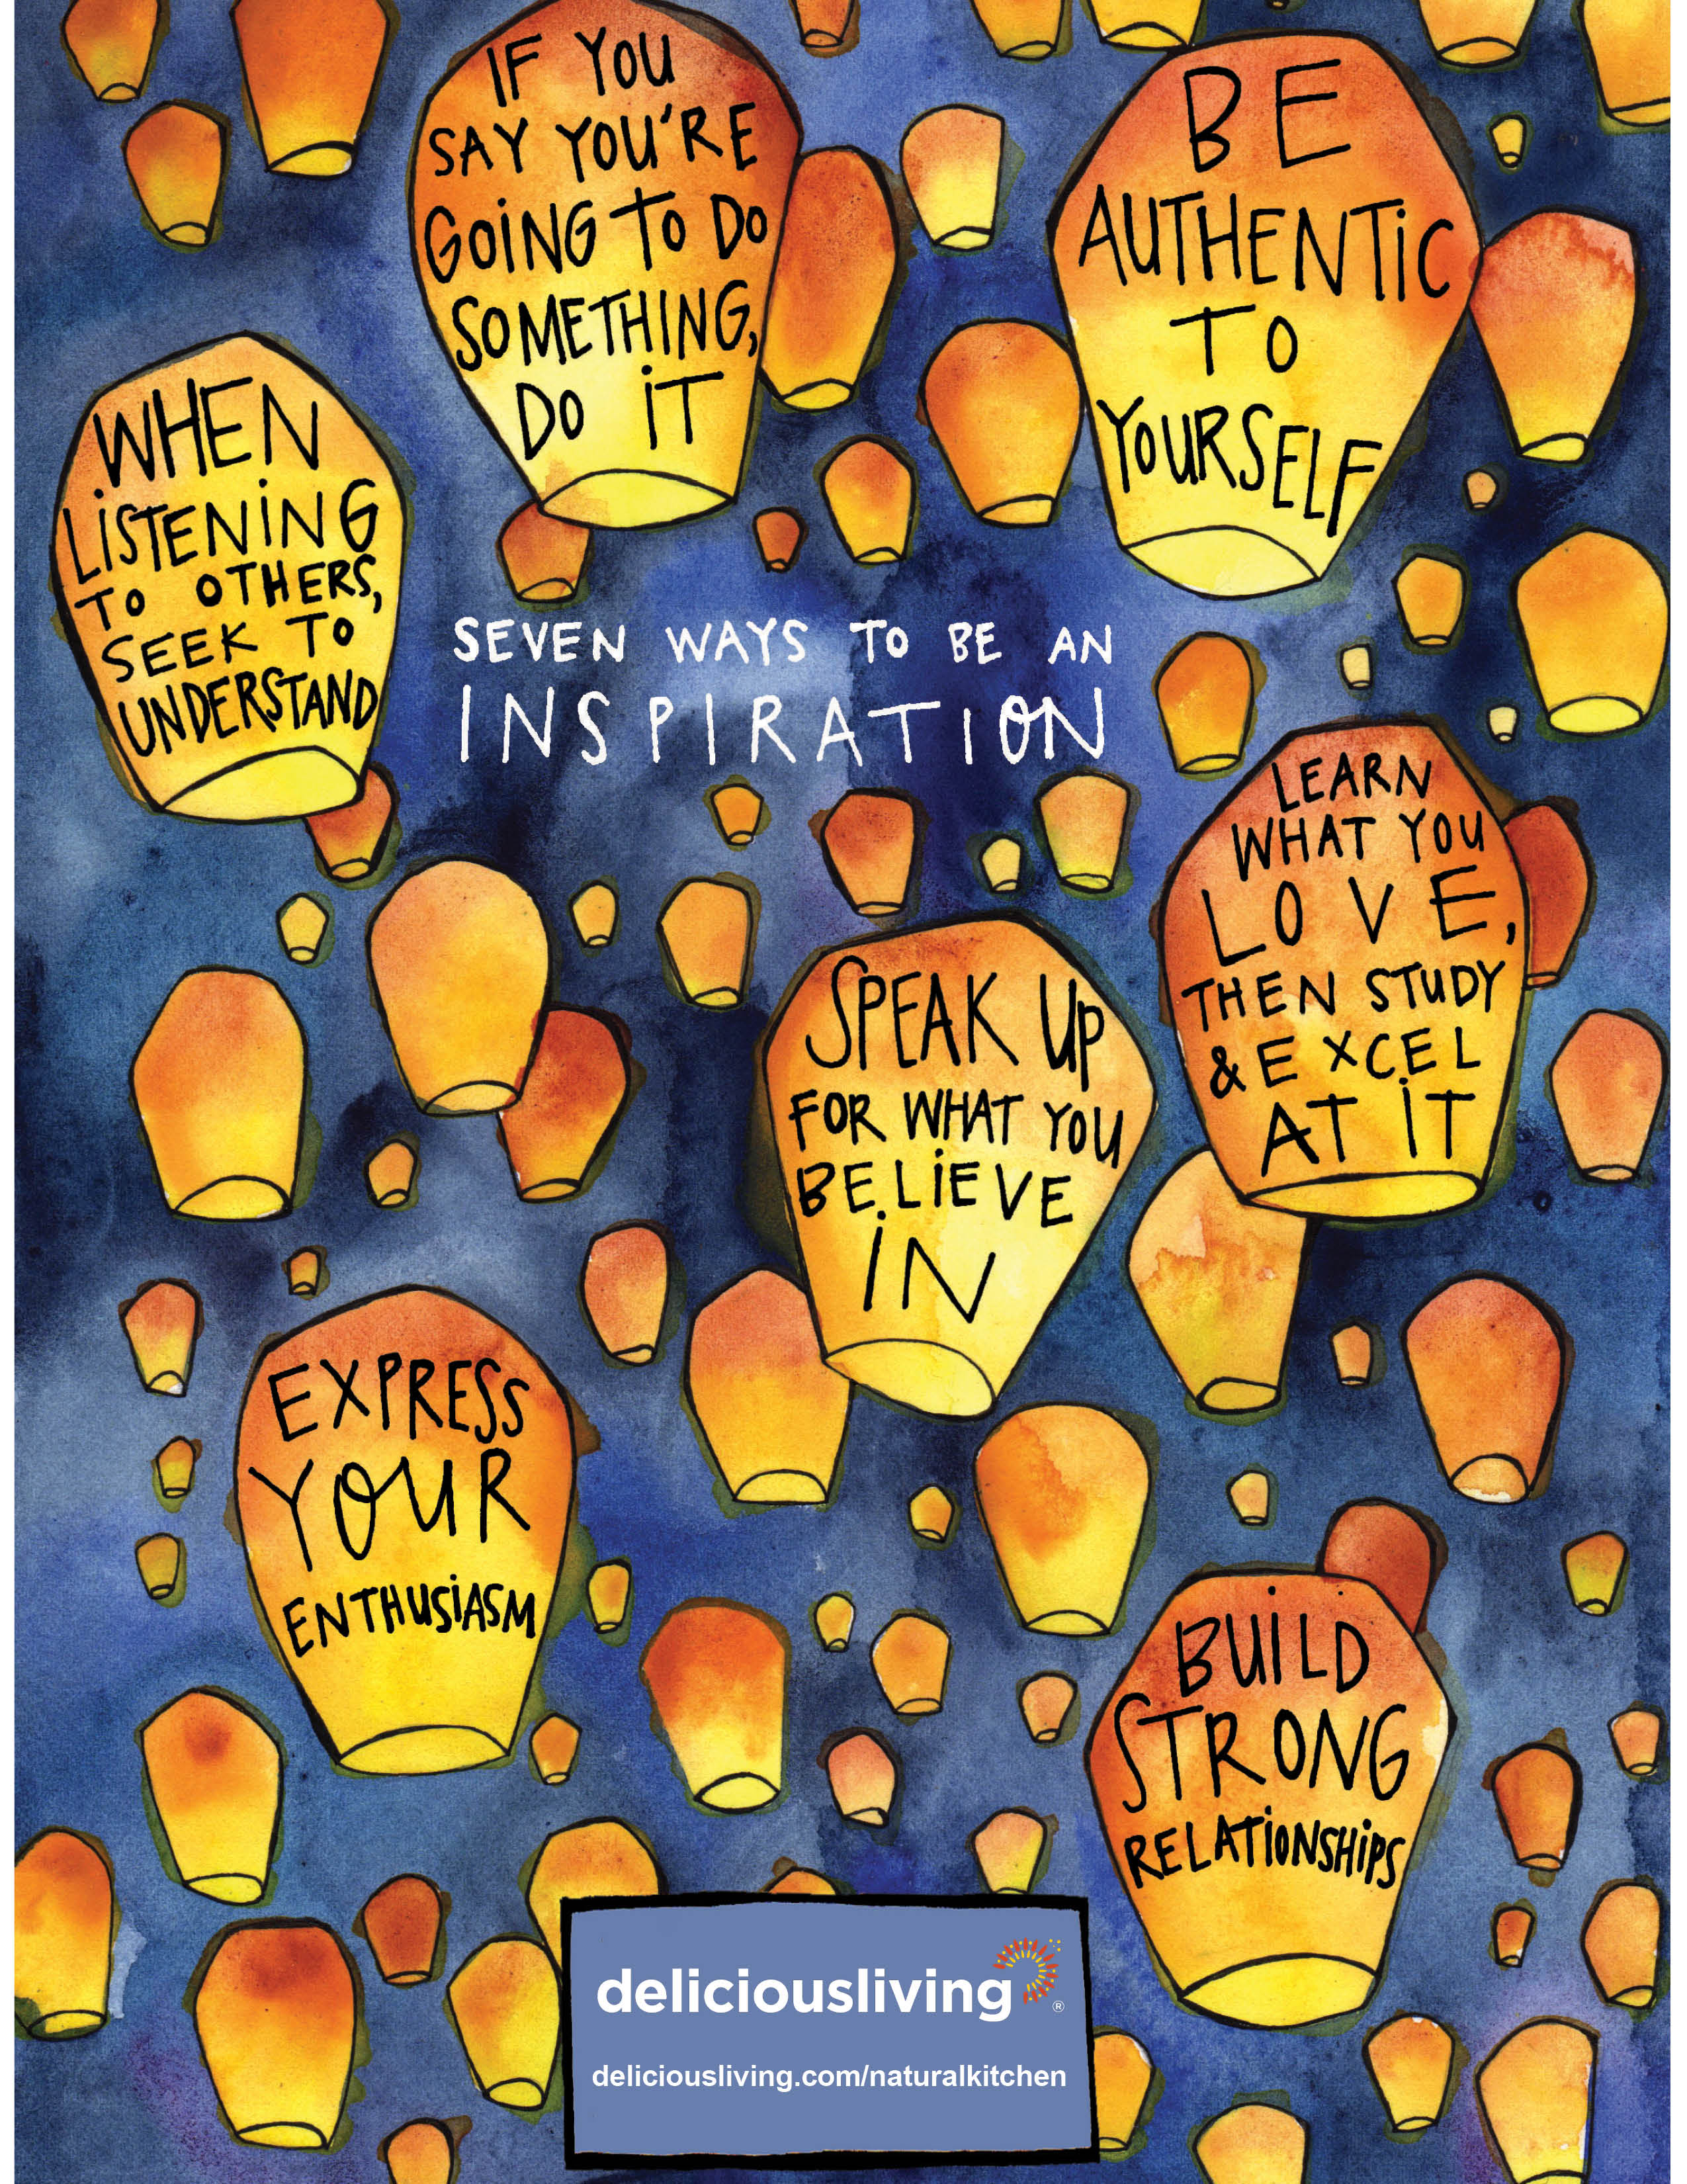 IF YOU
SAY YOU'RE
GOING TO DO
SOMETHING,
DO IT
BE
AUTHENTIC
TO
YOURSELF
WHEN
LISTENING
TO OTHERS,
SEEK TO
UNDERSTAND
SEVEN WAYS TO BE AN
INSPIRATION
LEARN
WHAT YOU
LOVE,
THEN STUDY
& EXCEL
AT IT
SPEAK UP
FOR WHAT YOU
BELIEVE
IN
EXPRESS
YOUR
ENTHUSIASM
BUILD
STRONG
RELATIONSHIPS
deliciousliving®
deliciousliving.com/naturalkitchen